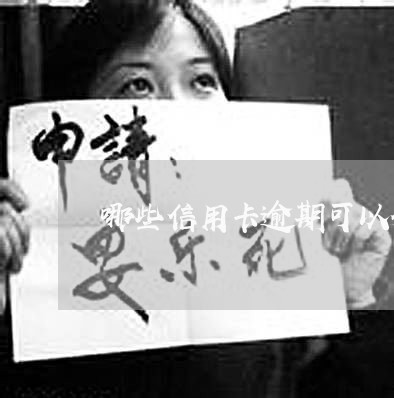 申請：
哪些信用卡逾期可以
安乐死